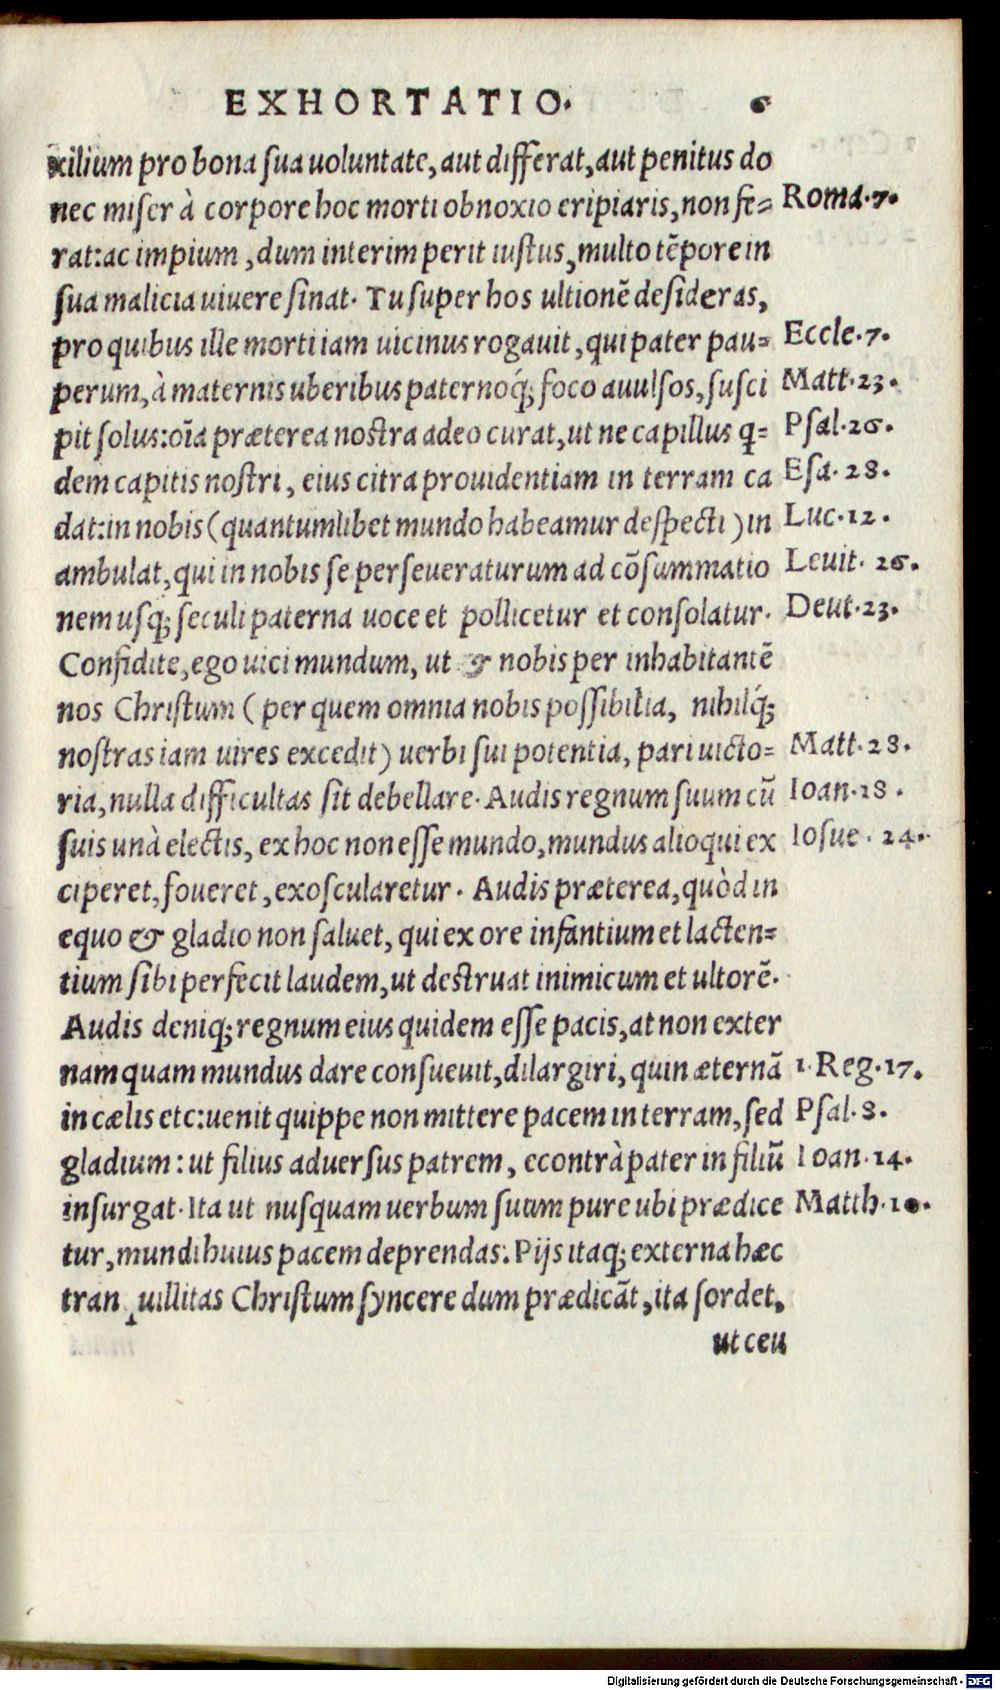 EXHORTATIO. 6
xilium pro bona sua uoluntate, aut differat, aut penitus do
nec miser à corpore hoc morti obnoxio eripiaris, non fe=
rat: ac impium, dum interim perit iustus, multo tẽpore in
sua malicia uiuere sinat. Tu super hos ultionẽ desideras,
pro quibus ille morti iam uicinus rogauit, qui pater pau=
perum, à maternis uberibus paternoq́; foco auulsos, susci
pit solus: oĩa præterea nostra adeo curat, ut ne capillus q=
dem capitis nostri, eius citra prouidentiam in terram ca
dat: in nobis (quantumlibet mundo habeamur despecti) in
ambulat, qui in nobis se perseueraturum ad cõsummatio
nem usq; seculi paterna uoce et pollicetur et consolatur.
Confidite, ego uici mundum, ut & nobis per inhabitantẽ
nos Christum (per quem omnia nobis possibilia, nihilq́;
nostras iam uires excedit) uerbi sui potentia, pari uicto=
ria, nulla difficultas sit debellare. Audis regnum suum cũ
suis unà electis, ex hoc non esse mundo, mundus alioqui ex
ciperet, foueret, exoscularetur. Audis præterea, quòd in
equo & gladio non saluet, qui ex ore infantium et lacten=
tium sibi perfecit laudem, ut destruat inimicum et ultorẽ.
Audis deniq; regnum eius quidem esse pacis, at non exter
nam quam mundus dare consueuit, dilargiri, quin æternã
in cælis etc: uenit quippe non mittere pacem in terram, sed
gladium: ut filius aduersus patrem, econtrà pater in filiũ
insurgat. Ita ut nusquam uerbum suum pure ubi prædice
tur, mundi huius pacem deprendas. Pijs itaq; externa hæc
tran uillitas Christum syncere dum prædicãt, ita sordet,
ut ceu
Roma. 7.
Eccle. 7.
Matt. 23.
Psal. 26.
Esa. 28.
Luc. 12.
Leuit. 26.
Deut. 23.
Matt. 28.
Ioan. 18.
Iosue. 24.
1. Reg. 17.
Psal. 8.
Ioan. 14.
Matth. 10.
Digitalisierung gefördert durch die Deutsche Forschungsgemeinschaft - DFG